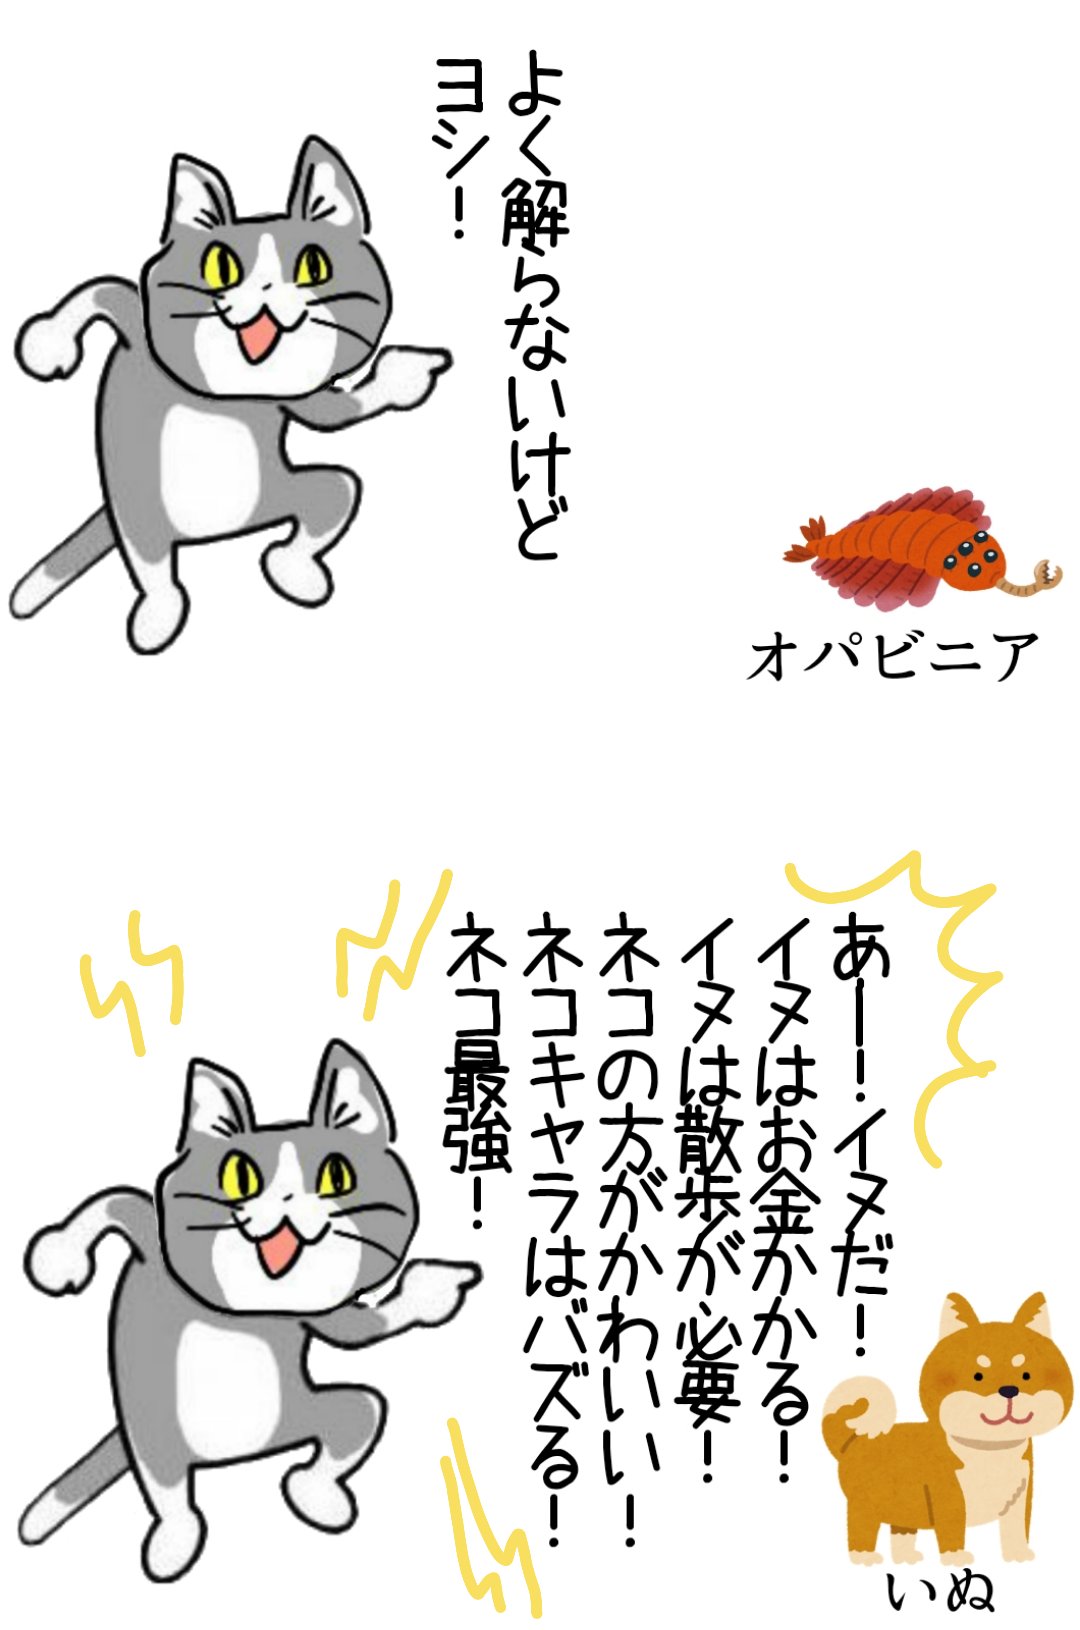 よく解らないけど
ヨシ！
オパビニア
あー！イヌだ！
イヌはお金かかる！
イヌは散歩が必要！
ネコの方がかわいい！
ネコキャラはバズる！
ネコ最強！
いぬ